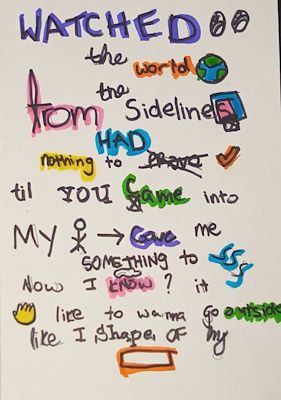 WATCHED
the world
from the Sidelines
HAD
nothing to Prove
til YOU Came into
MY → Gave me
SOMETHING to
Now I know? it
like to wanna go outside
like I Shape OF my